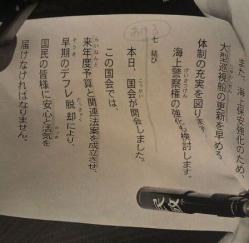 また、海上保安強化のため、
大型巡視船の更新を早める、
体制の充実を図ります。
海上警察権の強化も検討します。
七 結び
本日、国会が開会しました。
この国会では、
来年度予算と関連法案を成立させ、
早期のデフレ脱却により、
国民の皆様に安心と活気を
届けなければなりません。